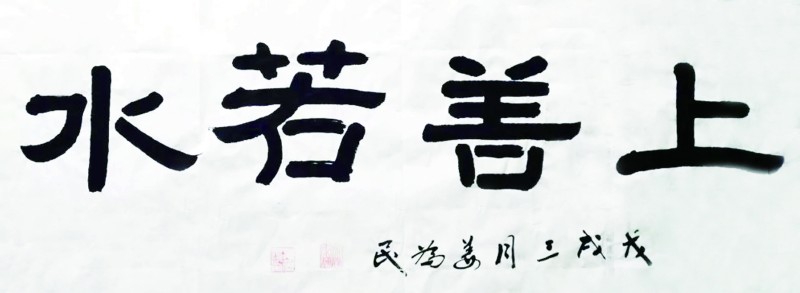 上善若水
戊戌三月姜為民